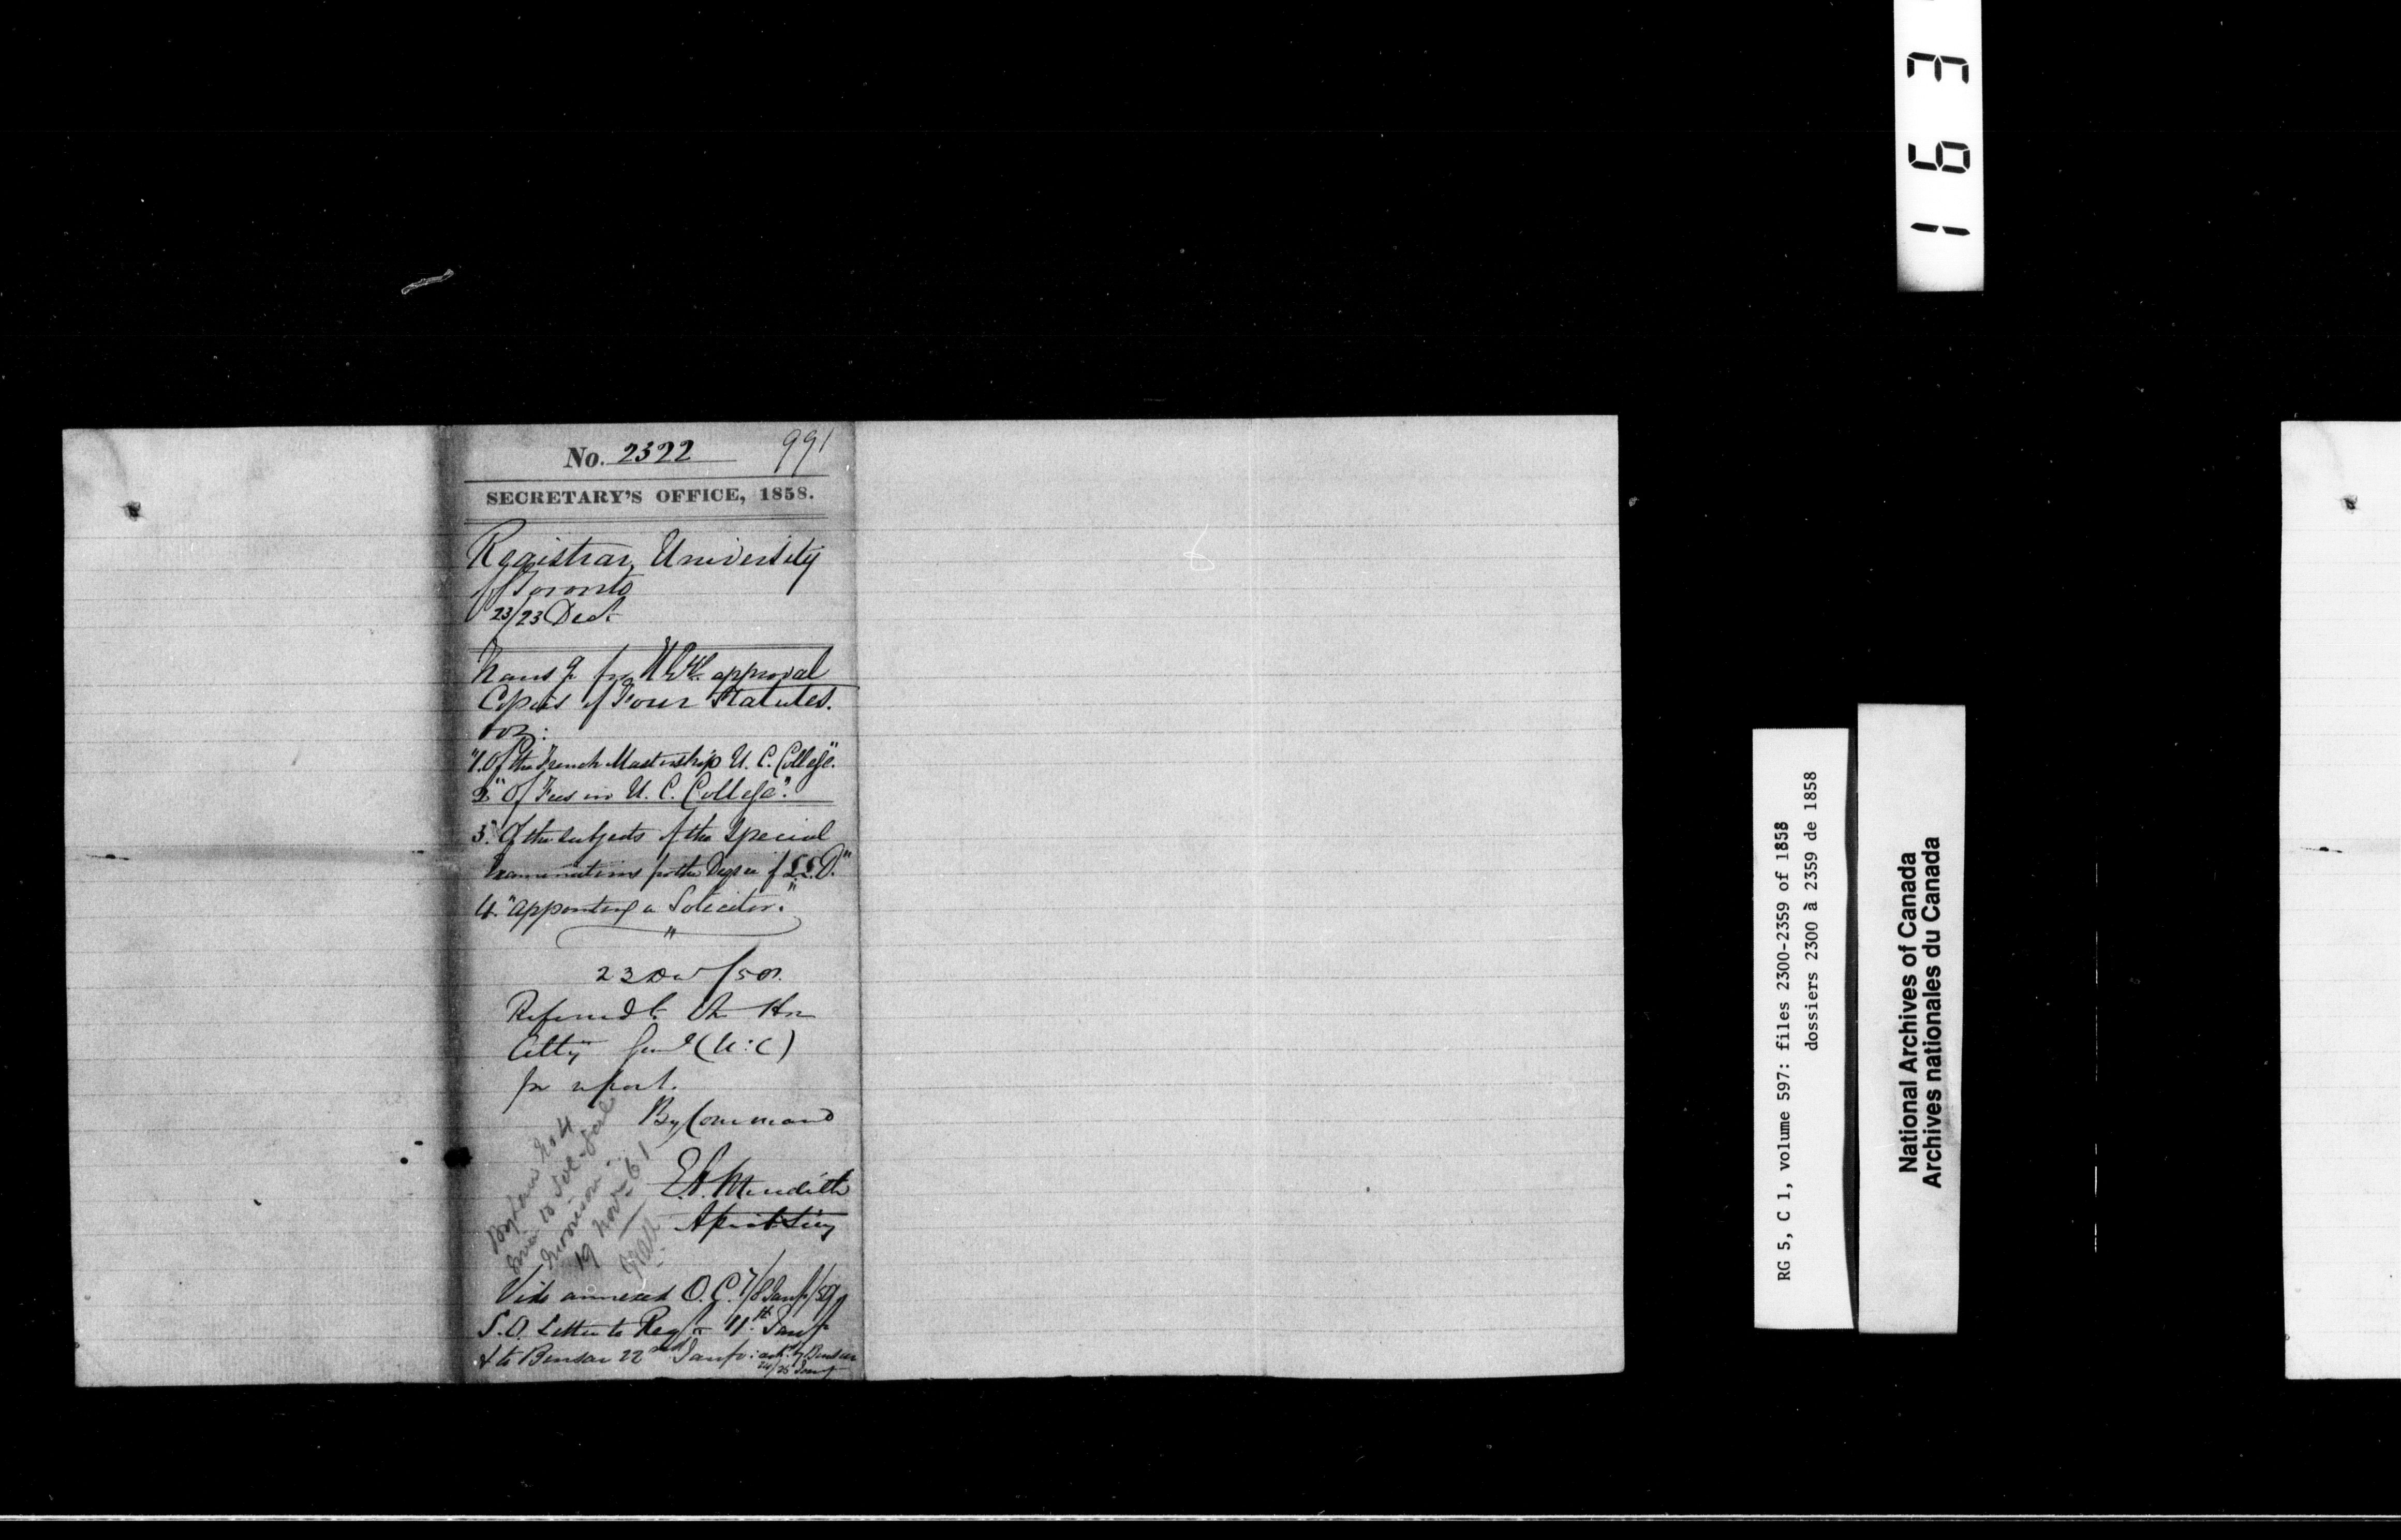 No. 2322 991
SECRETARY'S OFFICE, 1858.
Registrar, University
of Toronto
23/23 Dect
Transg for H.E. approval
Copies of Four Statutes.
viz:
"1. Of the French Mastership U. C. College."
2 "Of Fees in U. C. College".
3. "Of the subjects of the Special
Examinations for the Degree of L.L.D."
4. "appointing a Solicitor."
23 Dec /58.
Referred to the Hon
Atty Genl (U:C)
for report.
By Command
E. A. Meredith
Asst Secy
No 4
to Sol-Genl
Morrison
19 Nov 61
Vide annexed O. C. 7/8 Jany/59
S.O. Letter to Regr 11th Jany
& to Benson 22nd Jany: ackd by Benson
24/25 Jany
163
RG 5, C 1, volume 597: files 2300-2359 of 1858
dossiers 2300 à 2359 de 1858
National Archives of Canada
Archives nationales du Canada